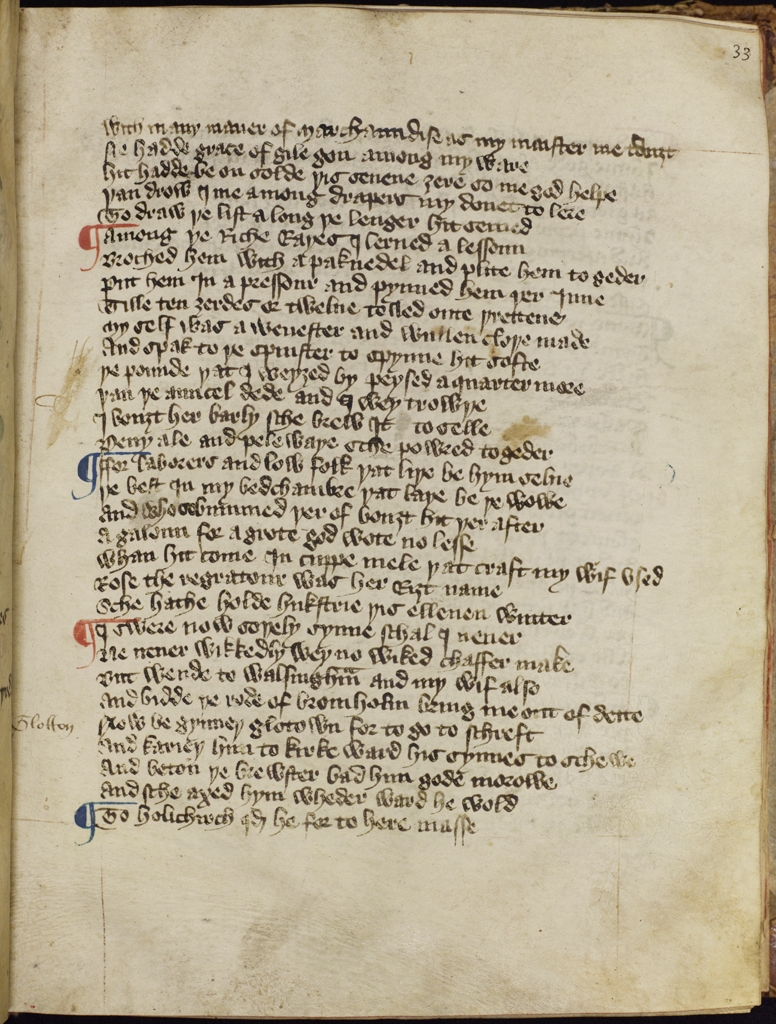 33
With many maner of marchaundise as my maister me bouzt
Ne hadde grace of gile gon among my ware
hit hadde be on solde yis seuene zere so me god helpe
yan drow I me among drapers my donet to lere
To draw ye list a long ye lenger hit semed
¶ among ye Riche Rayes I lerned a lessoun
Broched hem with a paknedel and plite hem to geder
Put hem In a pressour and pynned hem yer Inne
Tille ten zerdes or twelue tolled oute yrettene
my self was a webester and wullen cloye made
And spak to ye spinster to spynne hit softe
ye pounde yat I weyzed by peysed a quarter more
yan ye auncel dede and I wey trowye
I bouzt her barly sche brew It to selle
Peny ale and pele waye sche powred to geder
¶ ffor laborers and low folk yat liye be hym selue
ye best In my bedchambre yat laye be ye wowe
And who so bummed yer of bouzt hit yer after
A galoun for a grote god wote no lesse
Whan hit come In cuppe mele yat craft my wif vsed
Rose the regratour was her Rizt name
Sche hathe holde hukstrie yis elleuen winter
¶ I swere now soyely synne schal I neuer
Ne neuer wikkedly wey no wiked chaffer make
But wende to walsinghm and my wif also
And bidde ye rode of bromholm bring me out of dette
Glotton
Now be gynney glotown for to go to schrift
And kariey him to kirke ward his synnes to schewe
And beton ye brewster bad him gode morowe
And sche axed hym wheder ward he wold
¶ To holichirch qd he for to here masse